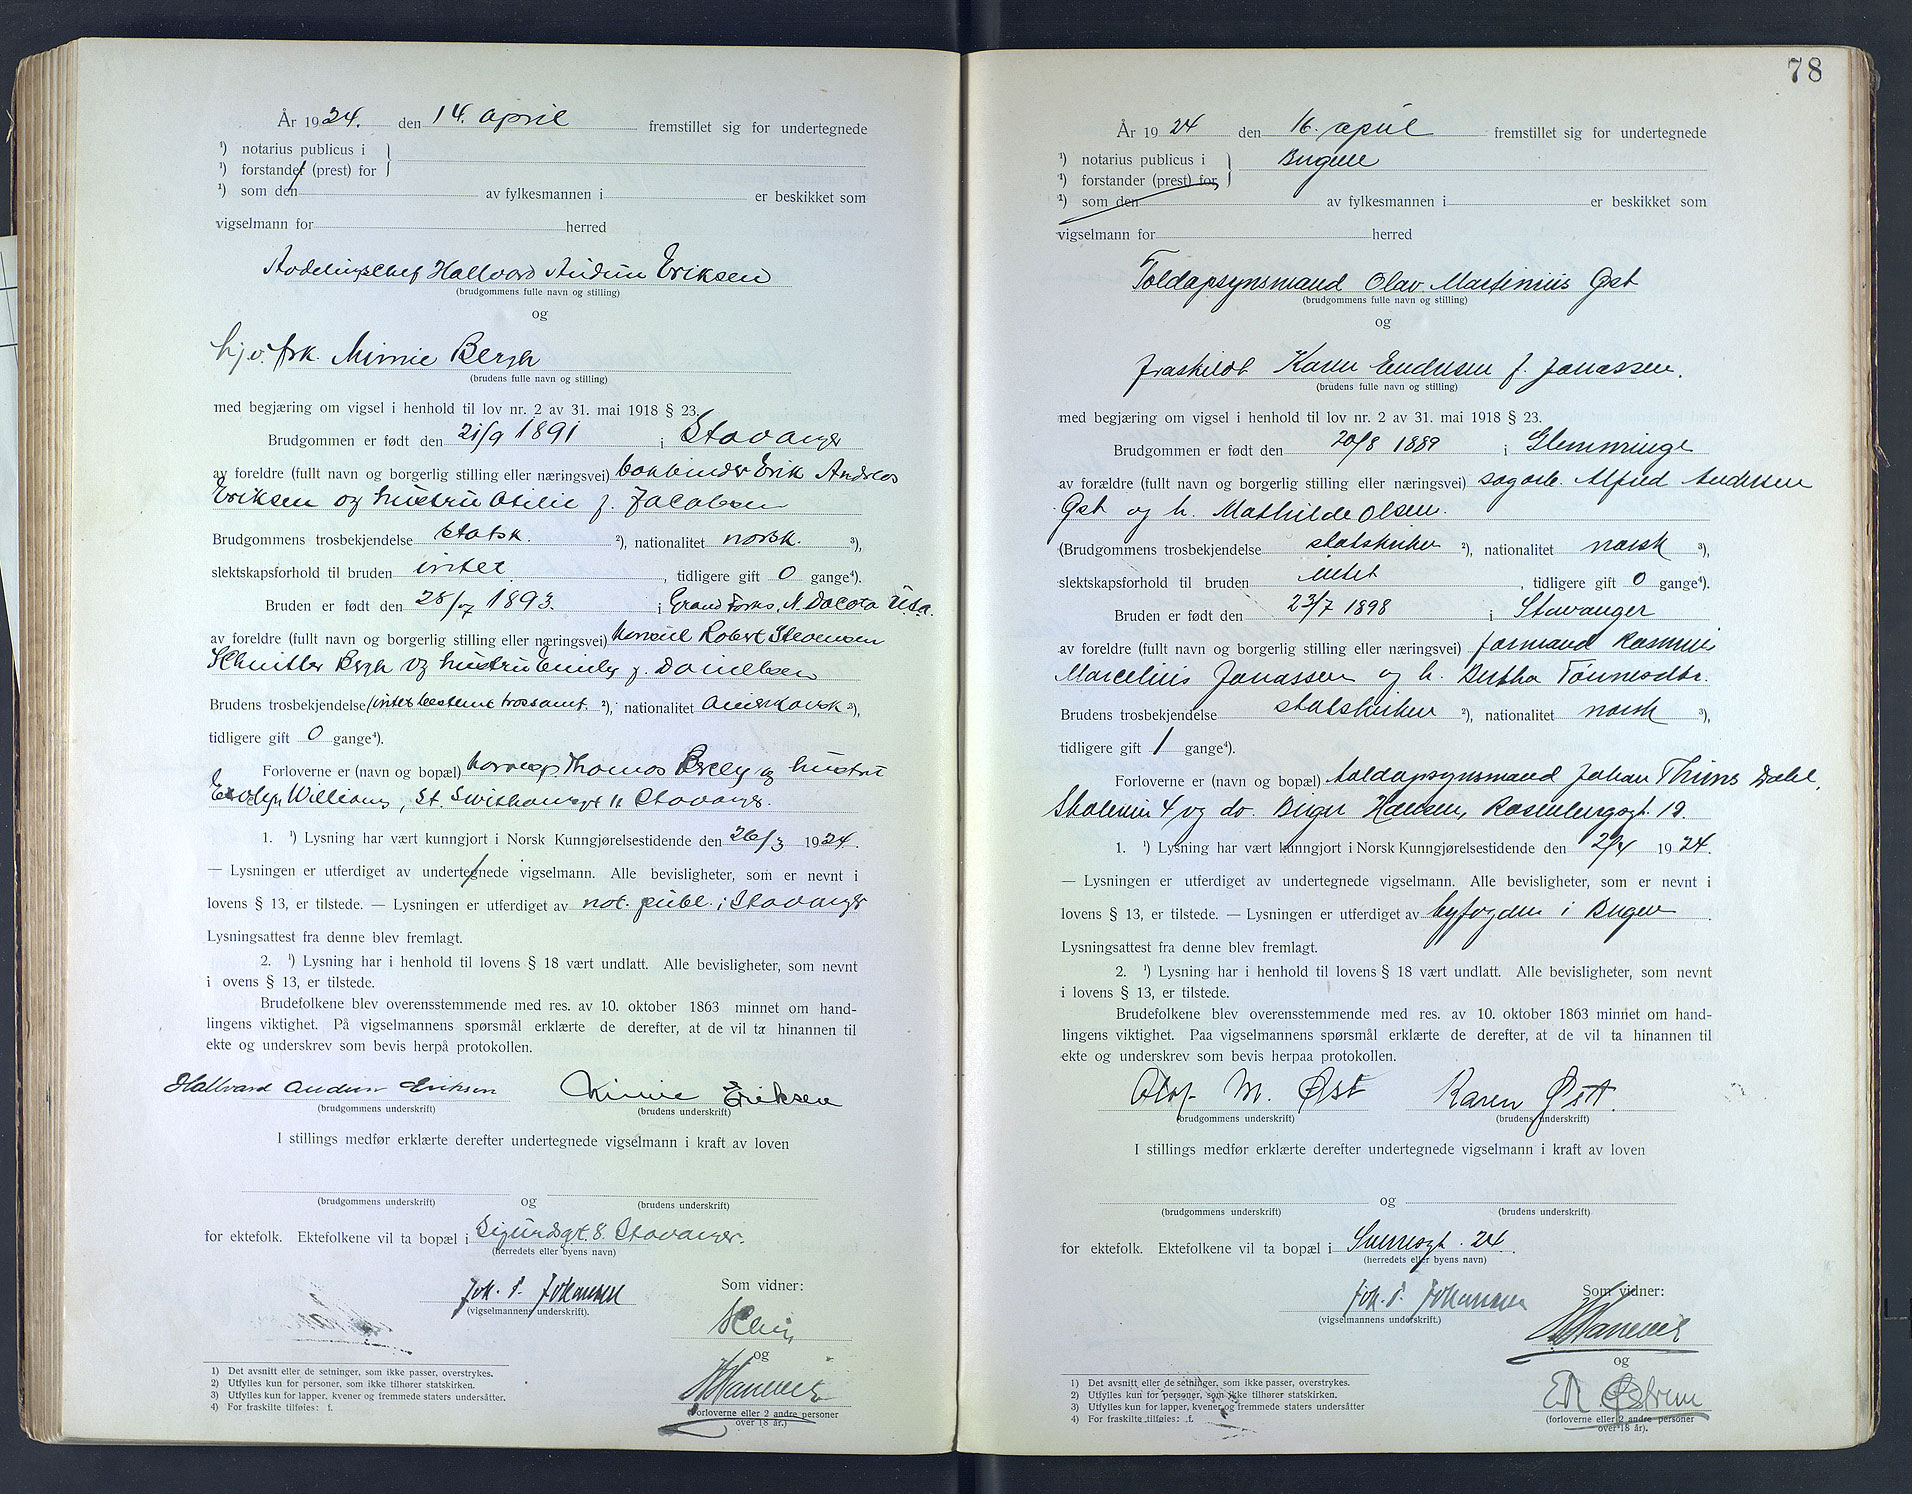 År 1924. den 14. april fremstillet sig for undertegnede
¹) notarius publicus i
¹) forstander (prest) for
¹) som den av fylkesmannen i er beskikket som
vigselmann for herred
Avdelingschef Hallvard Audun Eriksen
(brudgommens fulle navn og stilling)
og
frk. Minnie Bergh
(brudens fulle navn og stilling)
med begjæring om vigsel i henhold til lov nr. 2 av 31. mai 1918 § 23.
Brudgommen er født den 21/9 1891 i Stavanger
av foreldre (fullt navn og borgerlig stilling eller næringsvei) bokbinder Erik Andreas
Eriksen og hustru Otilie f. Jacobsen
Brudgommens trosbekjendelse statsk. ²), nationalitet norsk. ³),
slektskapsforhold til bruden intet , tidligere gift 0 gange⁴).
Bruden er født den 28/7 1893. i Grand Forks, N. Dacota Usa.
av foreldre (fullt navn og borgerlig stilling eller næringsvei) konsul Robert Stevensen
Schnitler Bergh og hustru Emily f. Danielsen
Brudens trosbekjendelse (intet bestemt trossamf. ²), nationalitet amerikansk ³),
tidligere gift 0 gange⁴).
Forloverne er (navn og bopæl) Thomas og hustru
Evelyn Williams, St. Svithunsgt 11 Stavanger.
1. ¹) Lysning har vært kunngjort i Norsk Kunngjørelsestidende den 26/3 1924.
— Lysningen er utferdiget av undertegnede vigselmann. Alle bevisligheter, som er nevnt i
lovens § 13, er tilstede. — Lysningen er utferdiget av not. publ. i Stavanger
Lysningsattest fra denne blev fremlagt.
2. ¹) Lysning har i henhold til lovens § 18 vært undlatt. Alle bevisligheter, som nevnt
i ovens § 13, er tilstede.
Brudefolkene blev overensstemmende med res. av 10. oktober 1863 minnet om hand-
lingens viktighet. På vigselmannens spørsmål erklærte de derefter, at de vil ta hinannen til
ekte og underskrev som bevis herpå protokollen.
Hallvard Audun Eriksen Minnie Eriksen
(brudgommens underskrift) (brudens underskrift)
I stillings medfør erklærte derefter undertegnede vigselmann i kraft av loven
og
(brudgommens underskrift) (brudens underskrift)
for ektefolk. Ektefolkene vil ta bopæl i Sigurdsgt. 8. Stavanger.
(herredets eller byens navn)
Joh. P. Johansen Som vidner:
(vigselmannens underskrift).
og
(forloverne eller 2 andre personer
over 18 år.)
1) Det avsnitt eller de setninger, som ikke passer, overstrykes.
2) Utfylles kun for personer, som ikke tilhører statskirken.
3) Utfylles kun for lapper, kvener og fremmede staters undersåtter.
4) For fraskilte tilføies: f.
78
År 1924 den 16. april fremstillet sig for undertegnede
¹) notarius publicus i Bergen
¹) forstander (prest) for
¹) som den av fylkesmannen i er beskikket som
vigselmann for herred
Toldopsynsmand Olav Martinius Øst
(brudgommens fulle navn og stilling)
og
fraskilt Karen Endresen f. Jonassen.
(brudens fulle navn og stilling)
med begjæring om vigsel i henhold til lov nr. 2 av 31. mai 1918 § 23.
Brudgommen er født den 20/8 1889 i Glemminge
av forældre (fullt navn og borgerlig stilling eller næringsvei) sagarb. Alfred Andersen
Øst og h. Mathilde Olsen.
(Brudgommens trosbekjendelse statskirken ²), nationalitet norsk ³),
slektskapsforhold til bruden intet , tidligere gift 0 gange⁴).
Bruden er født den 23/7 1898 i Stavanger
av foreldre (fullt navn og borgerlig stilling eller næringsvei) formand Rasmus
Marcelius Jonassen og h. Bertha Tønnesdtr.
Brudens trosbekjendelse statskirken ²), nationalitet norsk ³),
tidligere gift 1 gange⁴).
Forloverne er (navn og bopæl) toldopsynsmand Johan Dahl,
4 og do. Birger Hansen, Rosenbergsgt. 19.
1. ¹) Lysning har vært kunngjort i Norsk Kunngjørelsestidende den 2/4 1924.
— Lysningen er utferdiget av undertegnede vigselmann. Alle bevisligheter, som er nevnt i
lovens § 13, er tilstede. — Lysningen er utferdiget av byfogden i Bergen
Lysningsattest fra denne blev fremlagt.
2. ¹) Lysning har i henhold til lovens § 18 vært undlatt. Alle bevisligheter, som nevnt
i lovens § 13, er tilstede.
Brudefolkene blev overensstemmende med res. av 10. oktober 1863 minnet om hand-
lingens viktighet. Paa vigselmannens spørsmål erklærte de derefter, at de vil ta hinannen til
ekte og underskrev som bevis herpaa protokollen.
Olaf M. Øst Karen Øst.
(brudgommens underskrift) (brudens underskrift)
I stillings medfør erklærte derefter undertegnede vigselmann i kraft av loven
og
(brudgommens underskrift) (brudens underskrift)
for ektefolk. Ektefolkene vil ta bopæl i Sverresgt. 24.
(herredets eller byens navn)
Joh. P. Johansen Som vidner:
(vigselmannens underskrift.)
og
(forloverne eller 2 andre personer
over 18 år).
1) Det avsnitt eller de setninger, som ikke passer, overstrykes.
2) Utfylles kun for personer, som ikke tilhører statskirken.
3) Utfylles kun for lapper, kvener og fremmede staters undersåtter
4) For fraskilte tilføies: f.